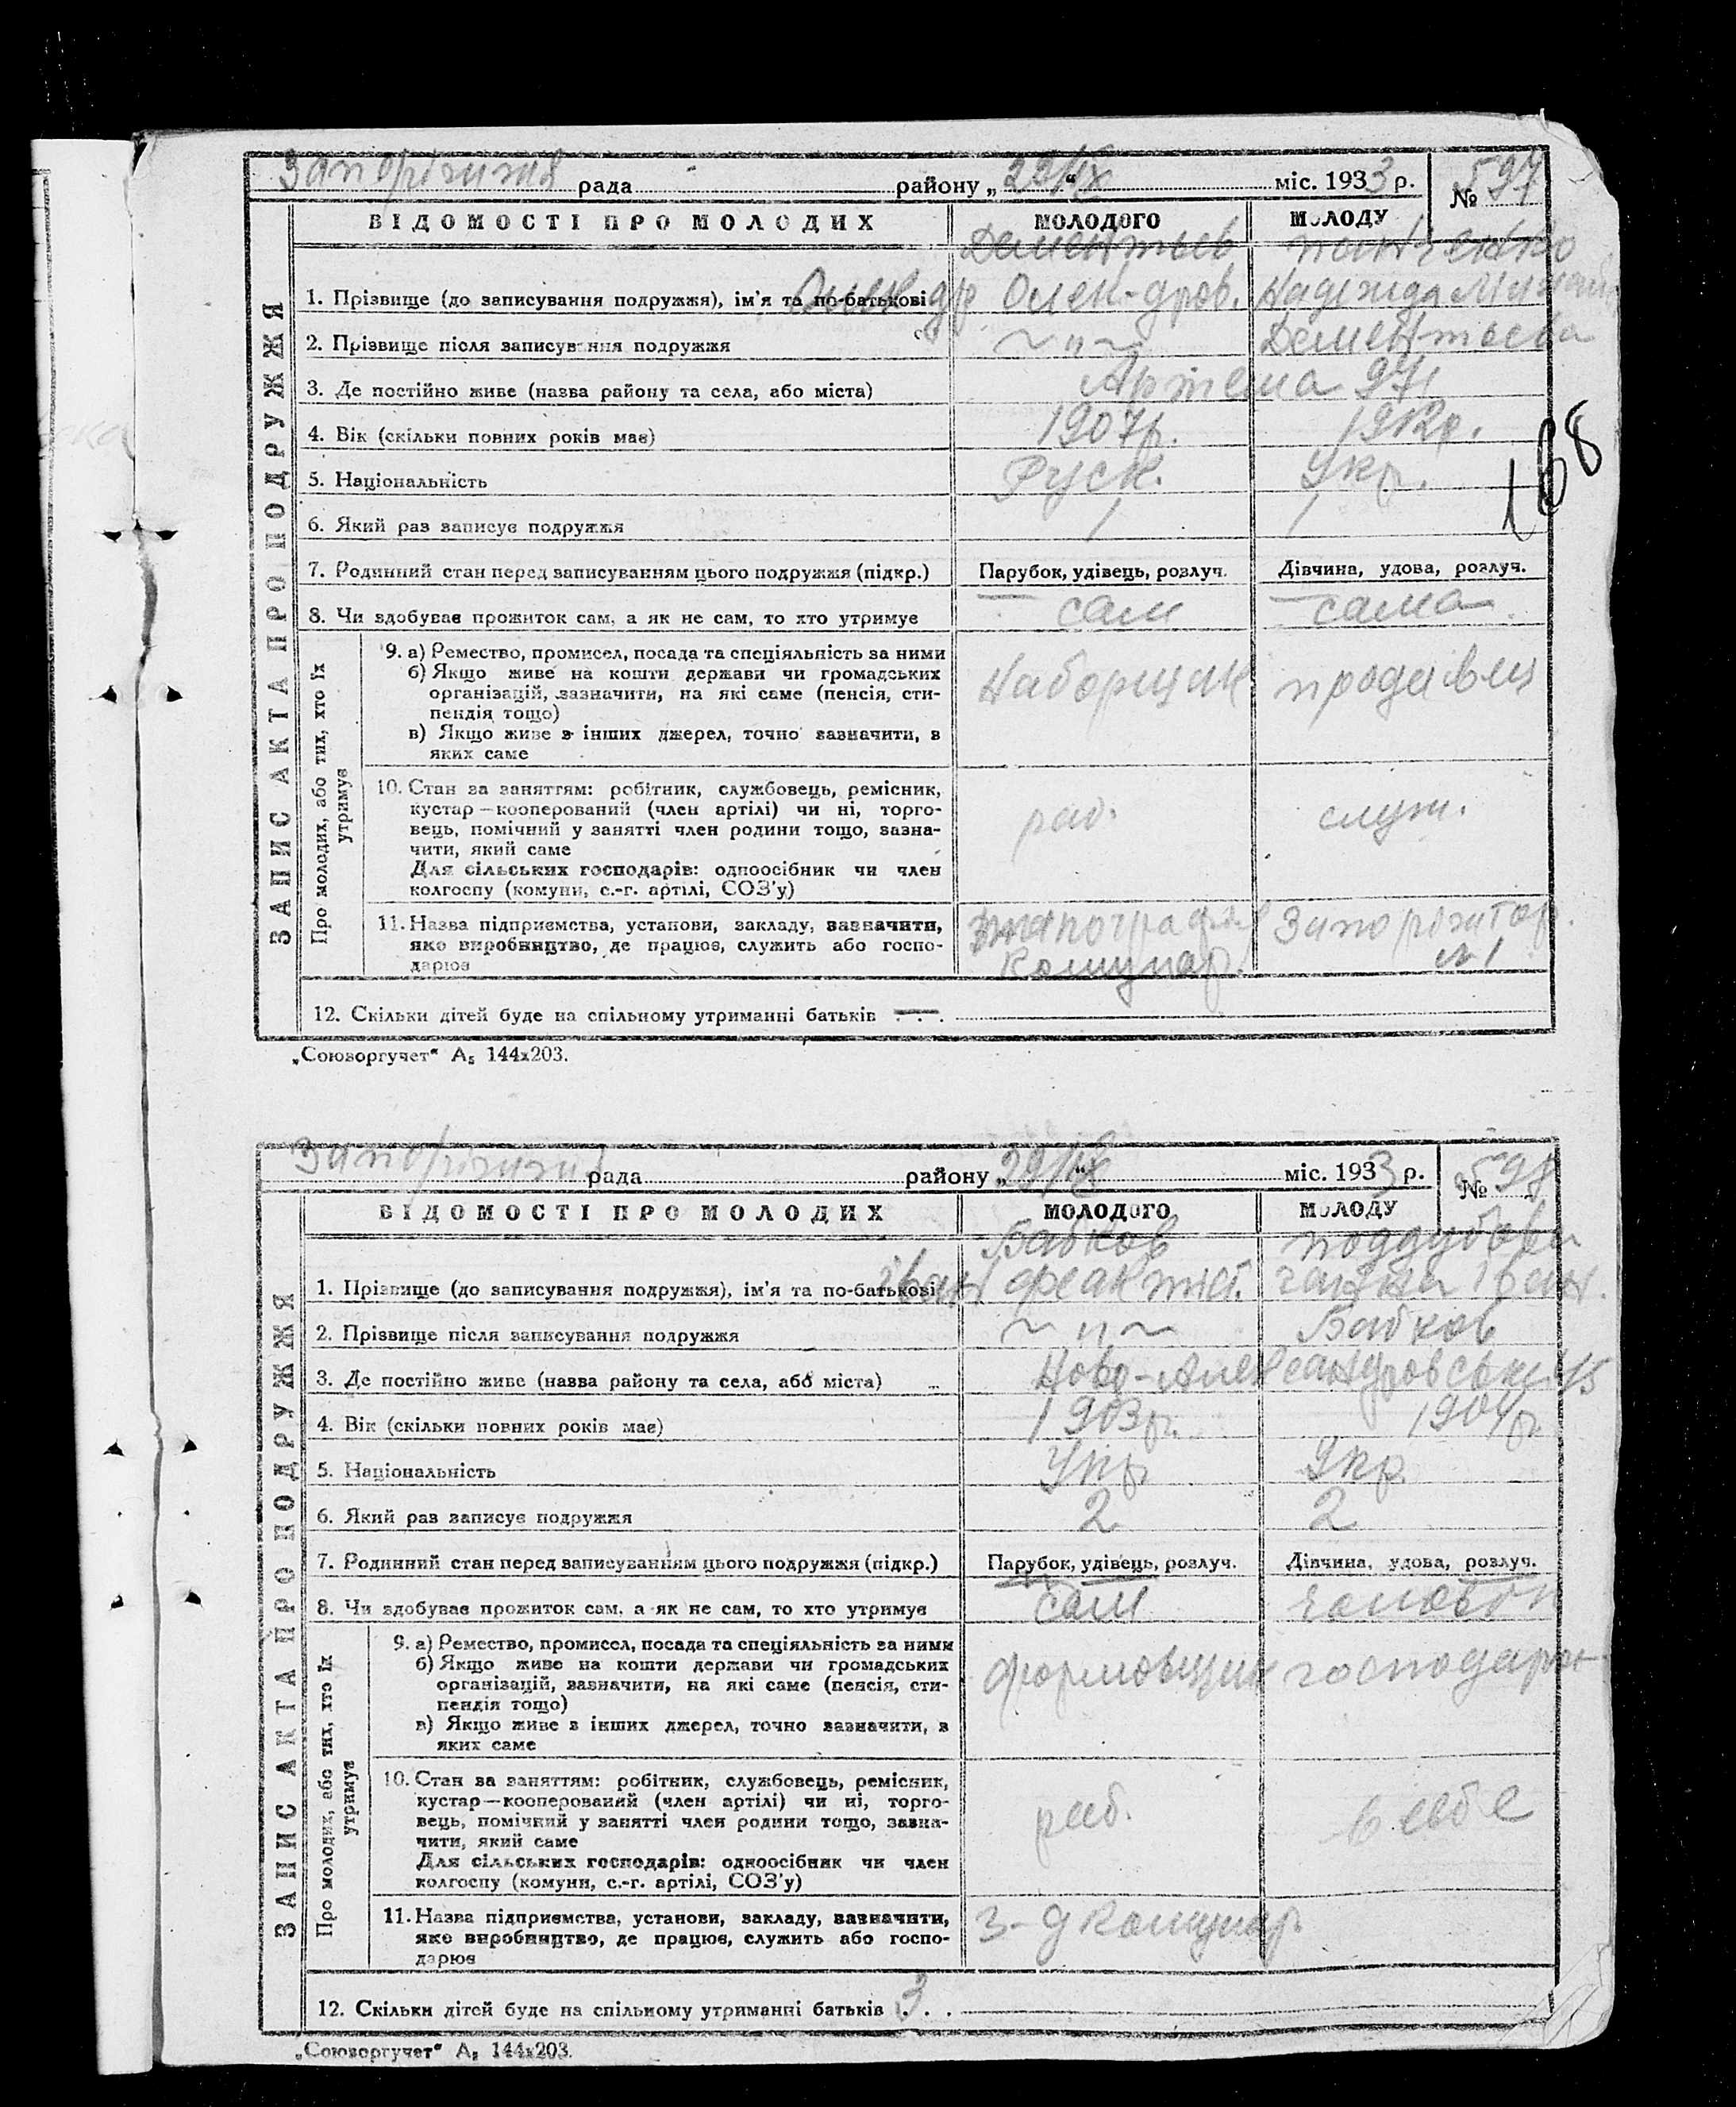 Запоріжжя рада района „29/IX“ міс. 1933 р. № 597
ВІДОМОСТІ ПРО МОЛОДИХ МОЛОДОГО МОЛОДУ
Дементьев
1. Прізвище (до записування подружжя), ім'я та по-батькові Олек-дров. Надежда
2. Прізвище після записування подружжя ~ " ~ Дементьева
3. Де постійно живе (назва району та села, або міста) Артема 97
4. Вік (скільки повних років має) 1907р. 1912р.
5. Національність Руск. Укр.
168
6. Який раз записує подружжя 1 1
7. Родинний стан перед записуванням цього подружжя (підкр.) Парубок, удівець, розлуч. Дівчина, удова, розлуч.
8. Чи здобуває прожиток сам, а як не сам, то хто утримує сам сама
ЗАПИС АКТА ПРО ПОДРУЖЖЯ
Про молодих, або тих, хто їх
утримує
9. а) Ремество, промисел, посада та спеціяльність за ними
б) Якщо живе на кошти держави чи громадських
організацій, зазначити, на які саме (пенсія, сти-
пендія тощо)
в) Якщо живе з інших джерел, точно зазначити, з
яких саме
Наборщик продавец
10. Стан за заняттям: робітник, службовець, ремісник,
кустар—кооперований (член артілі) чи ні, торго-
вець, помічний у занятті член родини тощо, зазна-
чити, який саме
Для сільських господарів: одноосібник чи член
колгоспу (комуни, с.-г. артілі, СОЗ'у)
раб. служ.
11. Назва підприємства, установи, закладу, зазначити,
яке виробництво, де працює, служить або госпо-
дарює
Комунар. №1
12. Скільки дітей буде на спільному утриманні батьків —
„Союзоргучет“ А₅ 144х203.
Запоріжжя рада району „29/IX“ міс. 1933 р. № 598
ВІДОМОСТІ ПРО МОЛОДИХ МОЛОДОГО МОЛОДУ
Бабков
1. Прізвище (до записування подружжя), ім'я та по-батькові Іван Ганна Іван.
2. Прізвище після записування подружжя ~ " ~ Бабков
3. Де постійно живе (назва району та села, або міста) Ново-Александровська 15
4. Вік (скільки повних років має) 1903р. 1904р.
5. Національність Укр Укр.
6. Який раз записує подружжя 2 2
7. Родинний стан перед записуванням цього подружжя (підкр.) Парубок, удівець, розлуч. Дівчина, удова, розлуч.
8. Чи здобуває прожиток сам, а як не сам, то хто утримує сам чоловік
ЗАПИС АКТА ПРО ПОДРУЖЖЯ
Про молодих, або тих, хто їх
утримує
9. а) Ремество, промисел, посада та спеціяльність за ними
б) Якщо живе на кошти держави чи громадських
організацій, зазначити, на які саме (пенсія, сти-
пендія тощо)
в) Якщо живе з інших джерел, точно зазначити, з
яких саме
формовщик господарк.
10. Стан за заняттям: робітник, службовець, ремісник,
кустар—кооперований (член артілі) чи ні, торго-
вець, помічний у занятті член родини тощо, зазна-
чити, який саме
Для сільських господарів: одноосібник чи член
колгоспу (комуни, с.-г. артілі, СОЗ'у)
раб. в себе
11. Назва підприємства, установи, закладу, зазначити,
яке виробництво, де працює, служить або госпо-
дарює
З-д Комунар.
12. Скільки дітей буде на спільному утриманні батьків 3
„Союзоргучет“ А₅ 144х203.